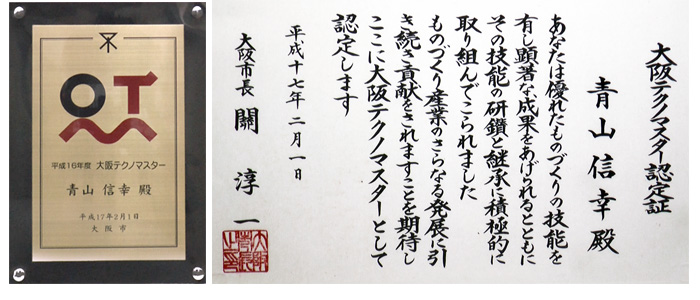 OT
平成16年度 大阪テクノマスター
青山 信幸 殿
平成17年2月1日
大阪市
大阪テクノマスター認定証
青山信幸殿
あなたは優れたものづくりの技能を
有し顕著な成果をあげられるとともに
その技能の研鑽と継承に積極的に
取り組んでこられました
ものづくり産業のさらなる発展に引
き続き貢献をされますことを期待し
ここに大阪テクノマスターとして
認定します
平成十七年二月一日
大阪市長 關 淳一